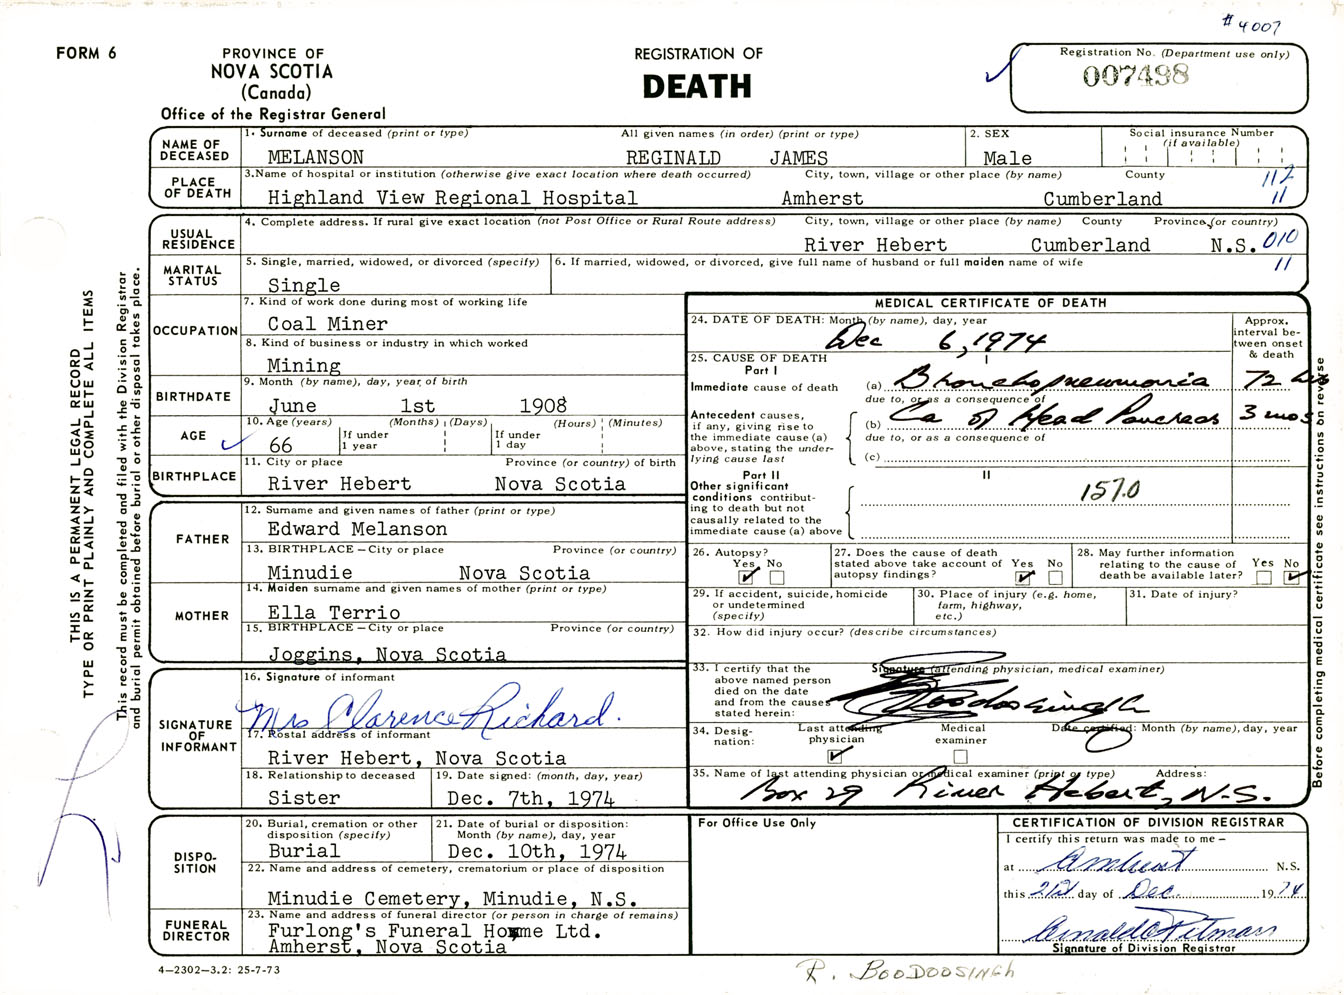 # 4007
FORM 6
PROVINCE OF
NOVA SCOTIA
(Canada)
Office of the Registrar General
REGISTRATION OF
DEATH
Registration No. (Department use only)
007498
THIS IS A PERMANENT LEGAL RECORD
TYPE OR PRINT PLAINLY AND COMPLETE ALL ITEMS
This record must be completed and filed with the Division Registrar
and burial permit obtained before burial or other disposal takes place.
NAME OF DECEASED
1. Surname of deceased (print or type) All given names (in order) (print or type) 2. SEX Social insurance Number (if available)
MELANSON REGINALD JAMES Male
PLACE OF DEATH
3. Name of hospital or institution (otherwise give exact location where death occurred) City, town, village or other place (by name) County
112
Highland View Regional Hospital Amherst Cumberland 11
USUAL RESIDENCE
4. Complete address. If rural give exact location (not Post Office or Rural Route address) City, town, village or other place (by name) County Province (or country)
River Hebert Cumberland N.S. 010
MARITAL STATUS
5. Single, married, widowed, or divorced (specify) 6. If married, widowed, or divorced, give full name of husband or full maiden name of wife 11
Single
OCCUPATION
7. Kind of work done during most of working life
Coal Miner
8. Kind of business or industry in which worked
Mining
BIRTHDATE
9. Month (by name), day, year, of birth
June 1st 1908
AGE
10. Age (years) (Months) (Days) (Hours) (Minutes)
66 If under 1 year If under 1 day
BIRTHPLACE
11. City or place Province (or country) of birth
River Hebert Nova Scotia
FATHER
12. Surname and given names of father (print or type)
Edward Melanson
13. BIRTHPLACE – City or place Province (or country)
Minudie Nova Scotia
MOTHER
14. Maiden surname and given names of mother (print or type)
Ella Terrio
15. BIRTHPLACE – City or place Province (or country)
Joggins, Nova Scotia
SIGNATURE OF INFORMANT
16. Signature of informant
Mrs Clarence Richard.
17. Postal address of informant
River Hebert, Nova Scotia
18. Relationship to deceased 19. Date signed: (month, day, year)
Sister Dec. 7th, 1974
DISPO-
SITION
20. Burial, cremation or other disposition (specify) 21. Date of burial or disposition: Month (by name), day, year
Burial Dec. 10th, 1974
22. Name and address of cemetery, crematorium or place of disposition
Minudie Cemetery, Minudie, N.S.
FUNERAL DIRECTOR
23. Name and address of funeral director (or person in charge of remains)
Furlong's Funeral Home Ltd.
Amherst, Nova Scotia
4–2302–3.2: 25-7-73
MEDICAL CERTIFICATE OF DEATH
24. DATE OF DEATH: Month (by name), day, year
Dec 6, 1974
Approx. interval be-
tween onset & death
25. CAUSE OF DEATH
Part I
Immediate cause of death (a) Bronchopneumonia 72 hrs
due to, or as a consequence of
Antecedent causes, if any, giving rise to the immediate cause (a) above, stating the under-
lying cause last
(b) Ca of Head Pancreas 3 mos
due to, or as a consequence of
(c)
Part II II
Other significant conditions contribut-
ing to death but not causally related to the immediate cause (a) above
157.0
26. Autopsy? Yes No
27. Does the cause of death stated above take account of autopsy findings? Yes No
28. May further information relating to the cause of death be available later? Yes No
29. If accident, suicide, homicide or undetermined (specify)
30. Place of injury (e.g. home, farm, highway, etc.)
31. Date of injury?
32. How did injury occur? (describe circumstances)
33. I certify that the above named person died on the date and from the causes stated herein:
Signature (attending physician, medical examiner)
Boodoosingh
34. Desig-
nation: Last attending physician Medical examiner Date certified: Month (by name), day, year
35. Name of last attending physician or medical examiner (print or type) Address:
Box 29 River Hebert, N.S.
Before completing medical certificate see instructions on reverse
For Office Use Only
CERTIFICATION OF DIVISION REGISTRAR
I certify this return was made to me –
at Amherst N.S.
this 21st day of Dec. 1974
Arnald Pitman
Signature of Division Registrar
R. BOODOOSINGH